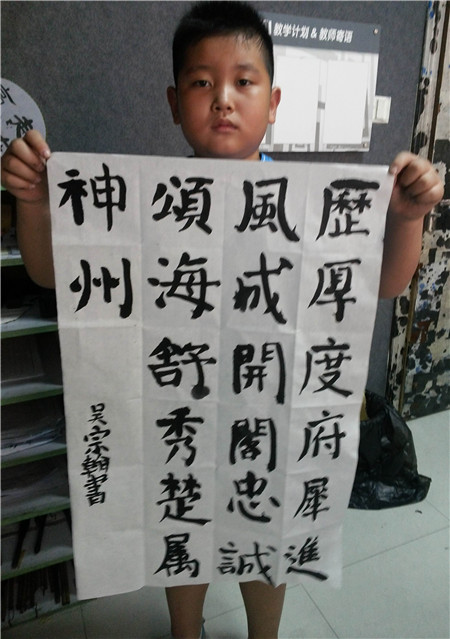 歷厚度府犀進
風成開閣忠誠
頌海舒秀楚属
神州
吴宗翰書
教学计划 & 教师寄语